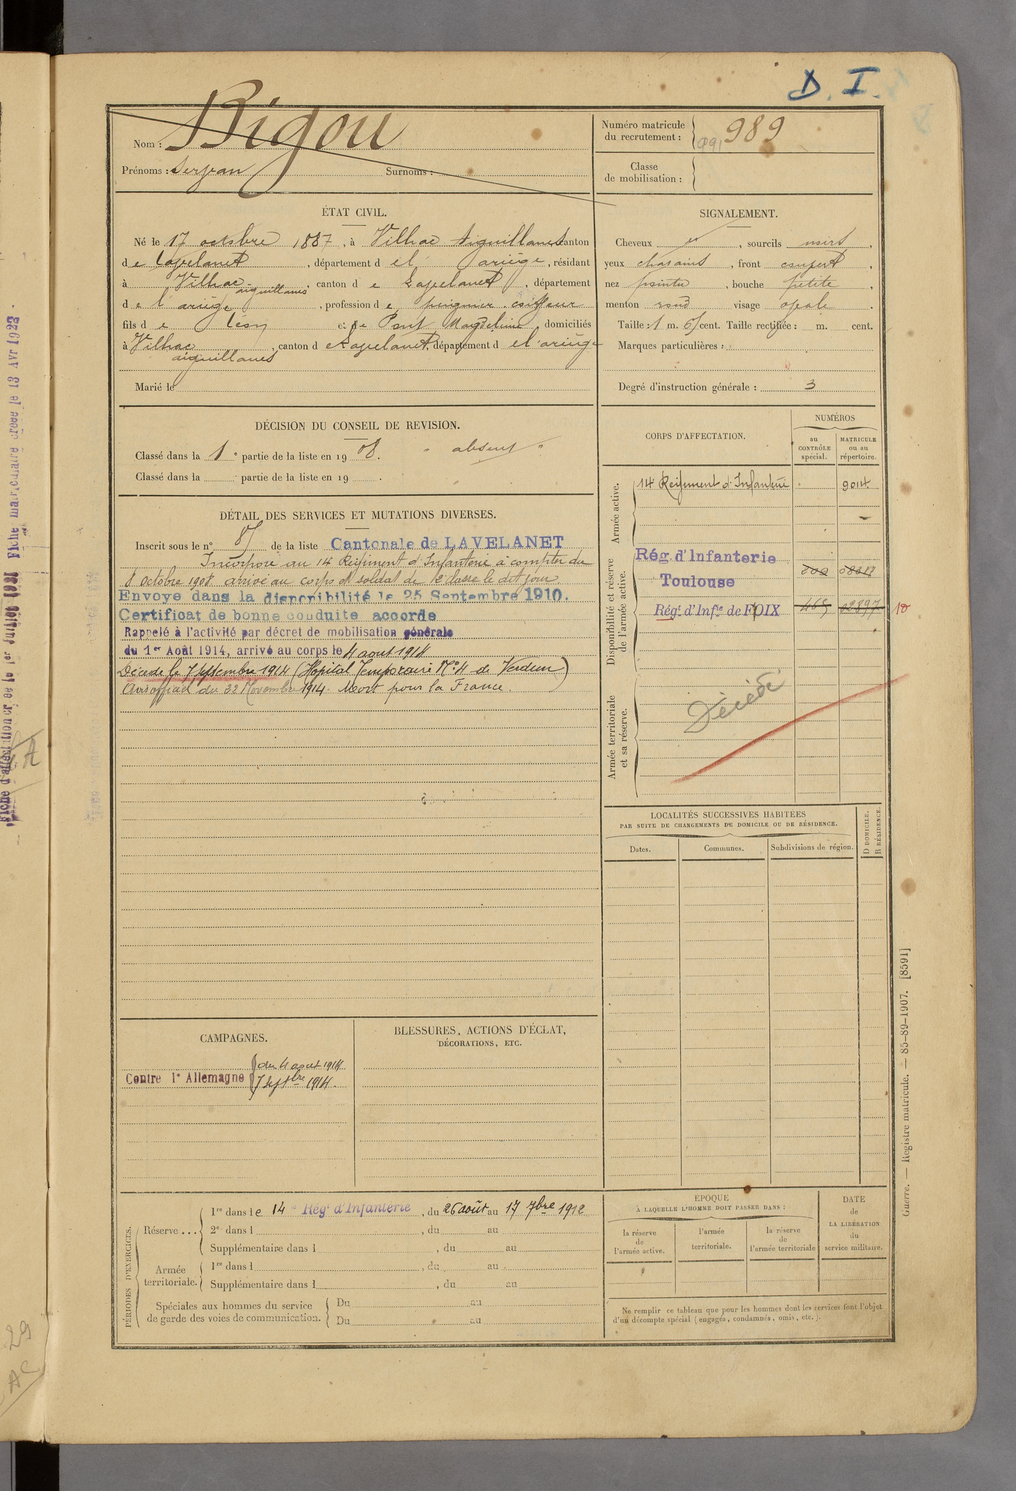 D. I.
Nom : Bigou
Prénoms : Serjean Surnoms :
Numéro matricule du recrutement : 989
Classe de mobilisation :
ÉTAT CIVIL.
Né le 17 octobre 1887, à Vilhac Aiguillanes canton
de Lavelanet, département de l' ariège, résidant
à Vilhac aiguillanes, canton de Lavelanet, département
de l'ariège, profession de coiffeur
fils de Léon et de Pont Magdeleine, domiciliés
à Vilhac aiguillanes, canton de Lavelanet, département de l'ariège
Marié le
SIGNALEMENT.
Cheveux et, sourcils noirs,
yeux chatains, front couvert,
nez pointu, bouche petite
menton rond visage ovale
Taille : 1 m. cent. Taille rectifiée : m. cent.
Marques particulières :
Degré d'instruction générale : 3
DÉCISION DU CONSEIL DE REVISION.
Classé dans la 1e partie de la liste en 1908. " absent "
Classé dans la partie de la liste en 19 .
DÉTAIL DES SERVICES ET MUTATIONS DIVERSES.
Inscrit sous le n° de la liste Cantonale de LAVELANET
Incorporé au 14 Régiment d'Infanterie à compter du
8 octobre 1908 arrivé au corps et soldat de 2e classe le dit jour
Envoye dans la disponibilité le 25 Septembre 1910.
Certificat de bonne conduite accorde
Rappelé à l'activité par décret de mobilisation générale
du 1er Août 1914, arrivé au corps le 4 aout 1914
Décédé le 7 septembre 1914 (Hôpital Temporaire N° 4 de Verdun)
Avis officiel du 22 Novembre 1914. Mort pour la France.
CORPS D'AFFECTATION.
NUMÉROS
au CONTRÔLE spécial.
MATRICULE ou au répertoire.
Armée active.
14 Régiment d'Infanterie 9014
Disponibilité et réserve de l'armée active.
Rég. d'Infanterie
Toulouse
Rég. d'Infie de FOIX 465 02897
Armée territoriale et sa réserve.
Décédé
LOCALITÉS SUCCESSIVES HABITÉES
PAR SUITE DE CHANGEMENTS DE DOMICILE OU DE RÉSIDENCE.
Dates. Communes. Subdivisions de région. D DOMICILE. R RÉSIDENCE.
CAMPAGNES.
Contre l'Allemagne du 4 aout 1914
7 septbre 1914.
BLESSURES, ACTIONS D'ÉCLAT,
DÉCORATIONS, ETC.
PÉRIODES D'EXERCICES.
Réserve ... 1re dans le 14 Régt d'Infanterie, du 26 août au 17 7bre 1912
2e dans l , du au
Supplémentaire dans l , du au
Armée territoriale. 1re dans l , du au
Supplémentaire dans l , du au
Spéciales aux hommes du service de garde des voies de communication. Du au
Du au
EPOQUE
À LAQUELLE L'HOMME DOIT PASSER DANS :
la réserve de l'armée active.
l'armée territoriale.
la réserve de l'armée territoriale
DATE de LA LIBÉRATION du service militaire.
Ne remplir ce tableau que pour les hommes dont les services font l'objet
d'un décompte spécial (engagés, condamnés, omis, etc.).
Guerre. — Registre matricule. — 85-89-1907. [8591]
Fiche matriculaire créée le 13 Avr 1923
29